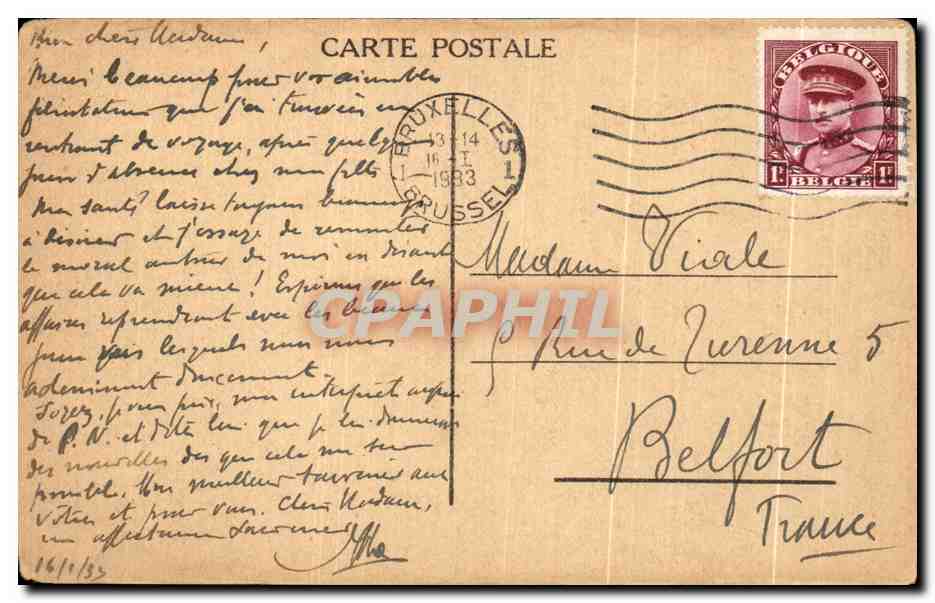 CARTE POSTALE
Bien chère Madame,
Merci beaucoup pour vos aimables
félicitations que j'ai trouvées en
rentrant de voyage, après quelques
jours d'absence chez mon fils
Ma santé laisse toujours beaucoup
à désirer et j'essaye de remonter
le moral autour de moi en disant
que cela va mieux ! Espérons que les
affaires reprendront avec les beaux
jours vers lesquels nous nous
acheminons doucement.
Soyez, pour prié, mon interprète auprès
de P.N. et dites lui que je lui donnerai
des nouvelles dès que cela me sera
possible. Mon meilleur souvenir aux
vôtres et pour vous, Chère Madame,
un affectueux souvenir
16/1/33
BRUXELLES 1
13-14
16 I
1933
1 BRUSSEL
BELGIQUE
1F 1F
BELGIE
Madame Viale
5 Rue de Turenne 5
Belfort
France
CPAPHIL